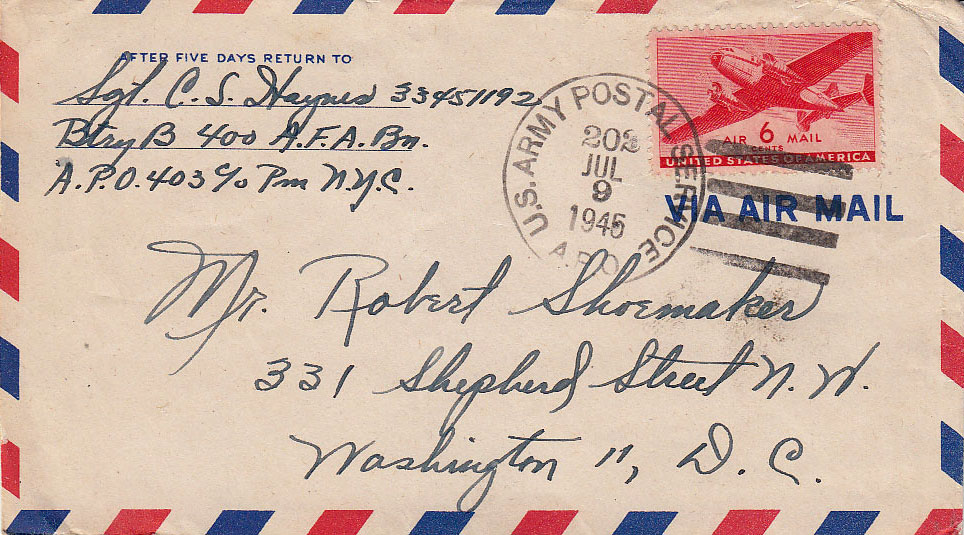 AFTER FIVE DAYS RETURN TO
Sgt. C. S. Haynes 33451192
Btry B 400 A.F.A. Bn.
A.P.O. 403 c/o Pm N.Y.C.
U.S. ARMY POSTAL SERVICE
202
JUL
9
1945
A.P.O.
AIR 6 MAIL
CENTS
UNITED STATES OF AMERICA
VIA AIR MAIL
Mr. Robert Shoemaker
331 Shepherd Street N.W.
Washington 11, D.C.